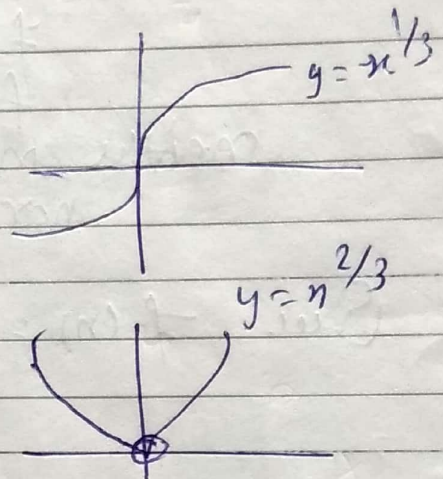 y = x^1/3
y = x^2/3